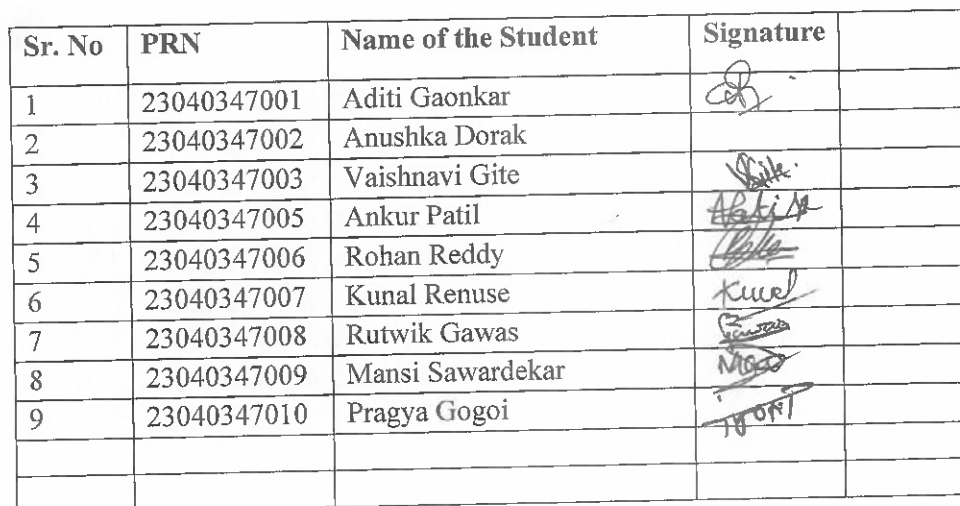 Sr. No PRN Name of the Student Signature
1 23040347001 Aditi Gaonkar
2 23040347002 Anushka Dorak
3 23040347003 Vaishnavi Gite
4 23040347005 Ankur Patil
5 23040347006 Rohan Reddy
6 23040347007 Kunal Renuse Kunal
7 23040347008 Rutwik Gawas
8 23040347009 Mansi Sawardekar
9 23040347010 Pragya Gogoi